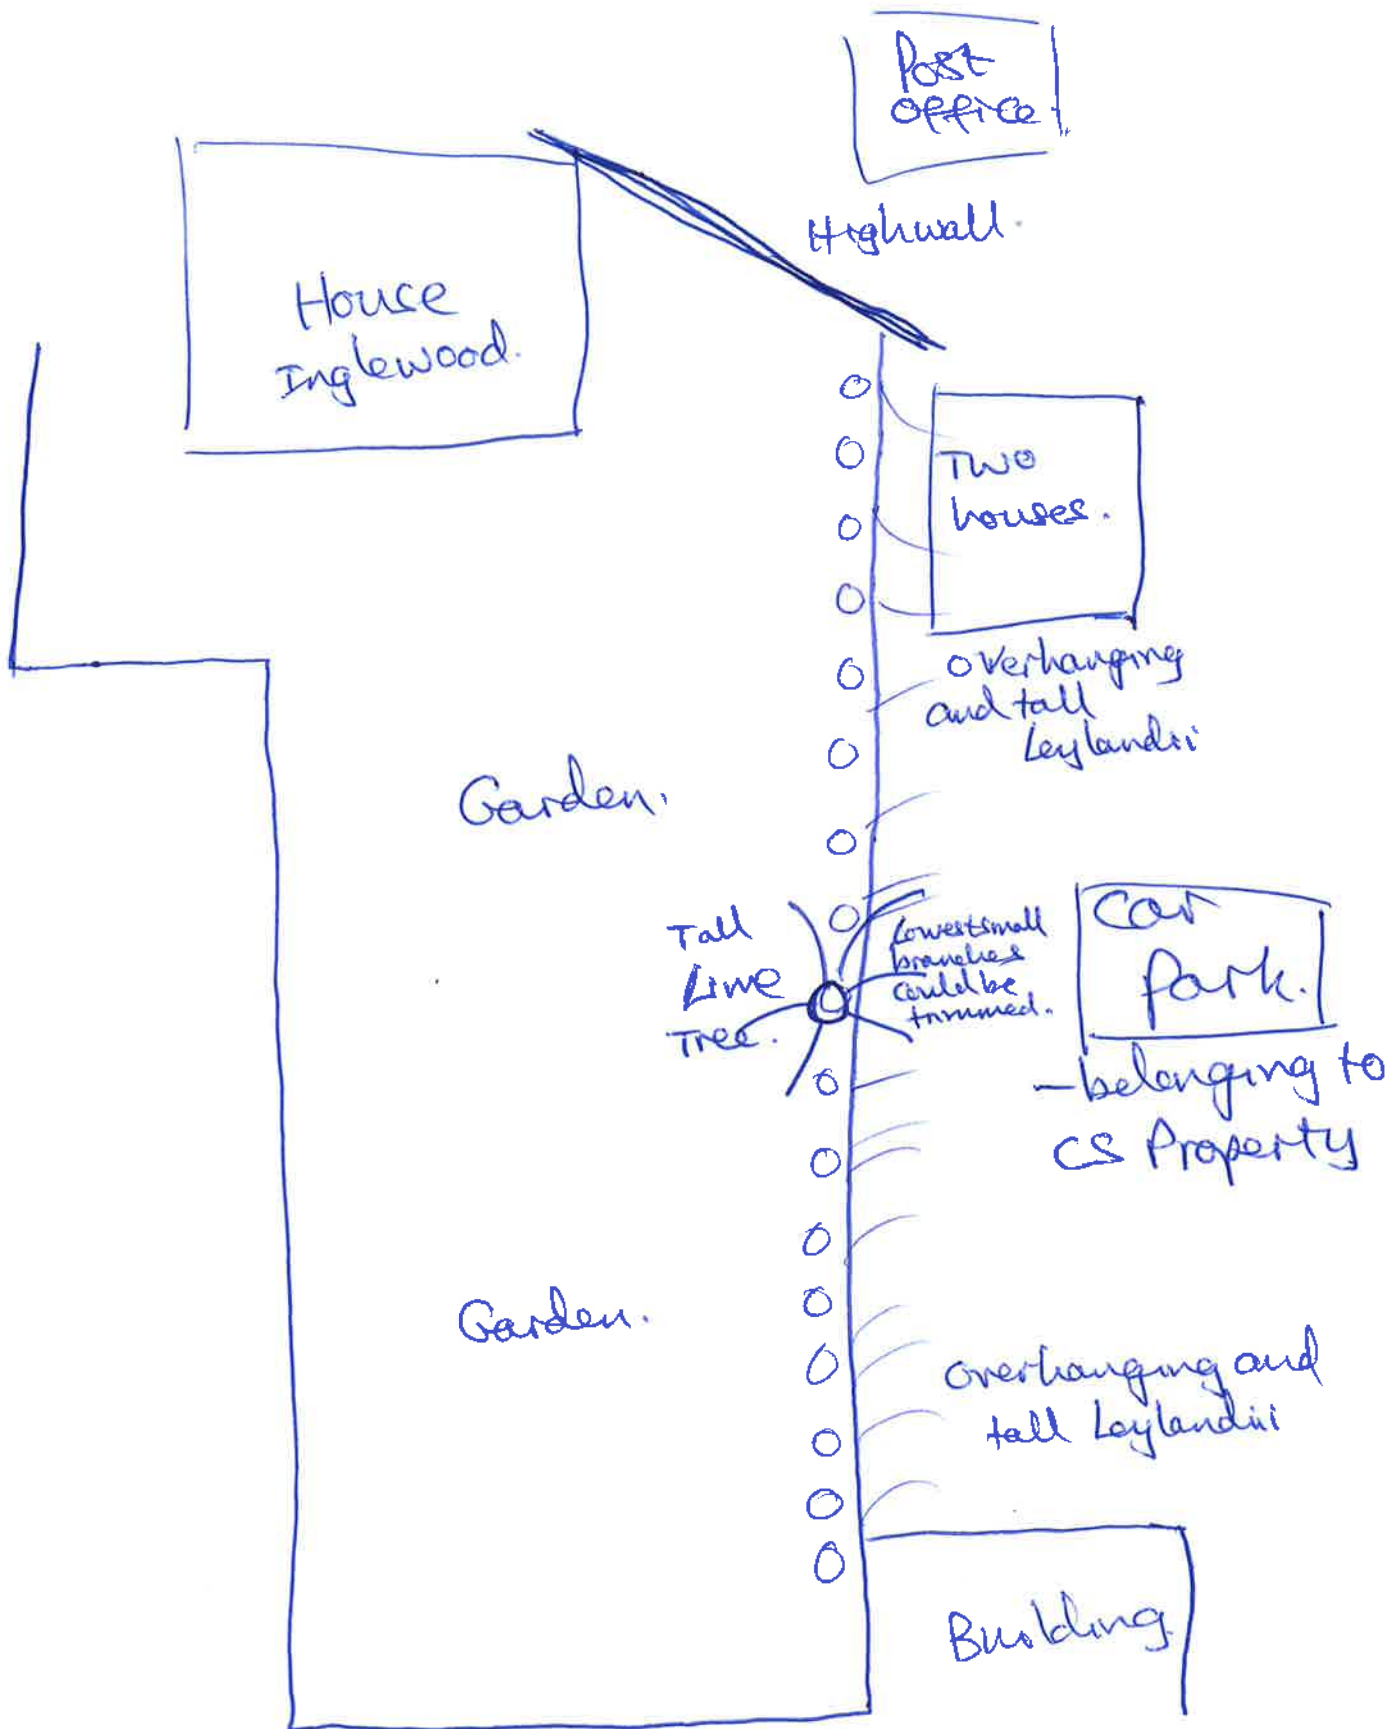 Post
office
Highwall.
House
Inglewood.
Two
houses.
overhanging
and tall
Leylandii
Garden.
Tall
Lime
Tree.
Lowest small
branches
could be
trimmed.
Car
Park.
- belonging to
CS Property
Garden.
overhanging and
tall Leylandii
Building